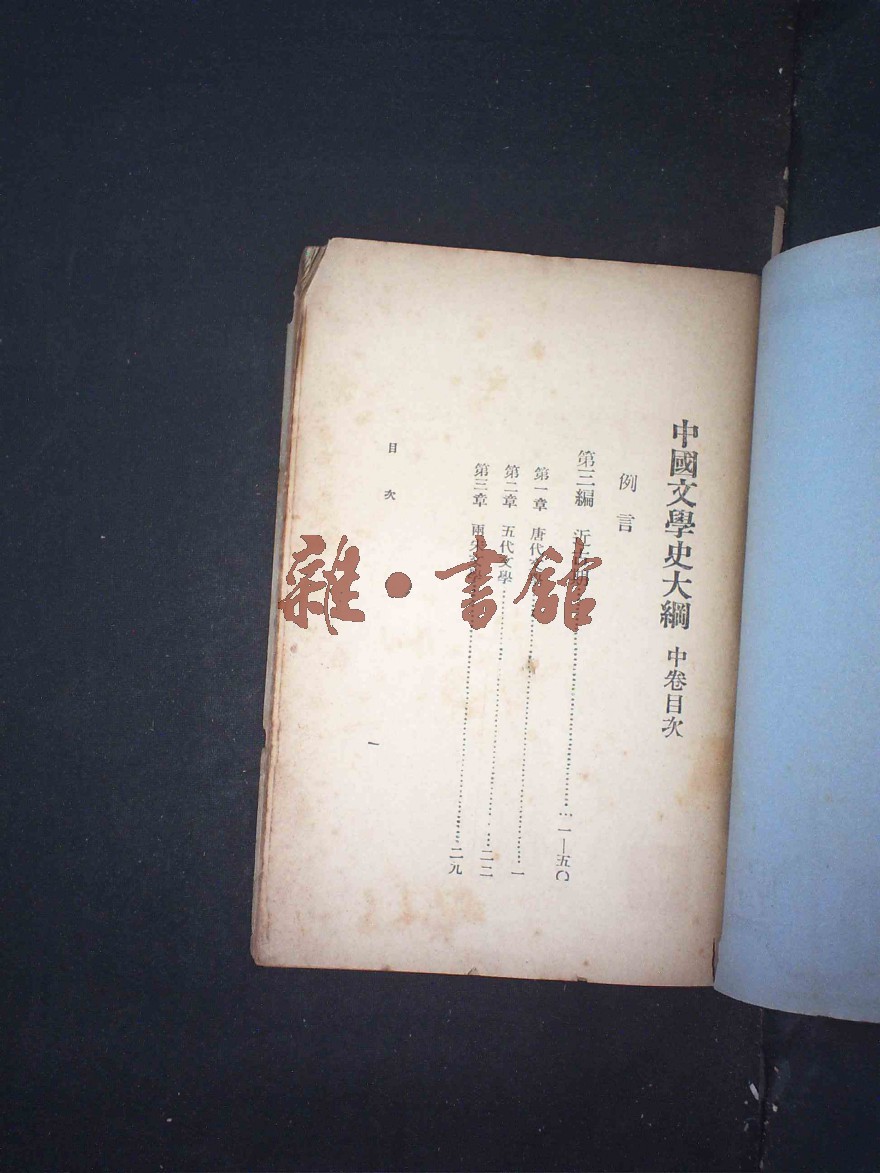 中國文學史大綱 中卷目次
例言
第三編 近古期……一—五〇
第一章 唐代文學……一
第二章 五代文學……二二
第三章 兩宋文學……二九
目次
一
雜·書館